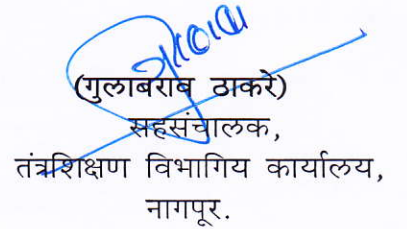 (गुलाबराव ठाकरे)
सहसंचालक,
तंत्रशिक्षण विभागिय कार्यालय,
नागपूर.